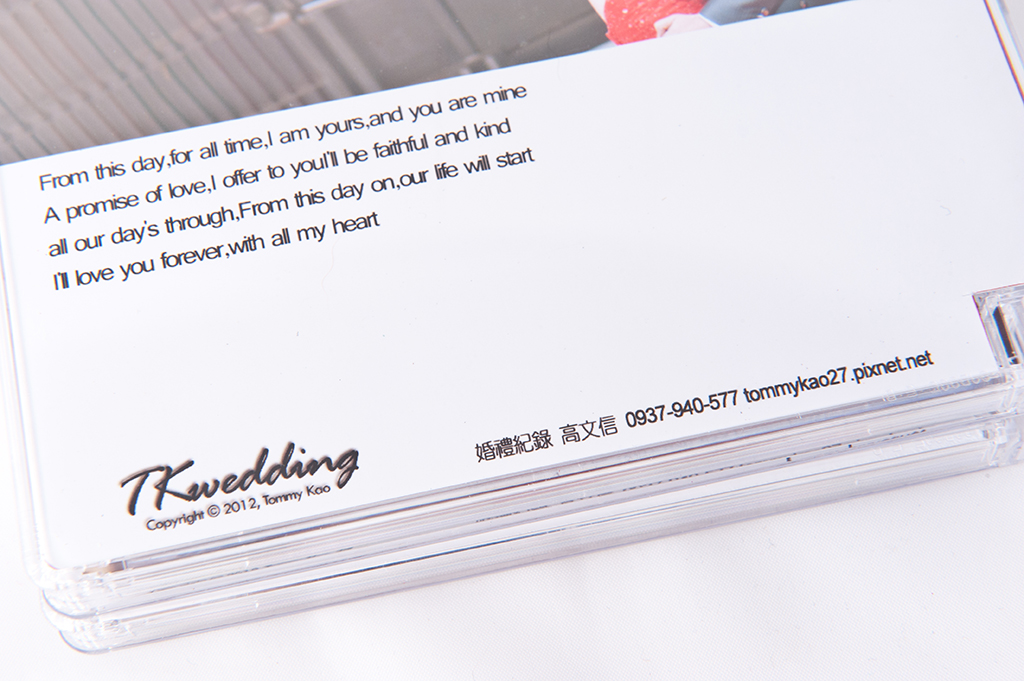 From this day,for all time,I am yours,and you are mine
A promise of love,I offer to youI'll be faithful and kind
all our day's through,From this day on,our life will start
I'll love you forever,with all my heart
婚禮紀錄 高文信 0937-940-577 tommykao27.pixnet.net
TKwedding
Copyright © 2012, Tommy Kao